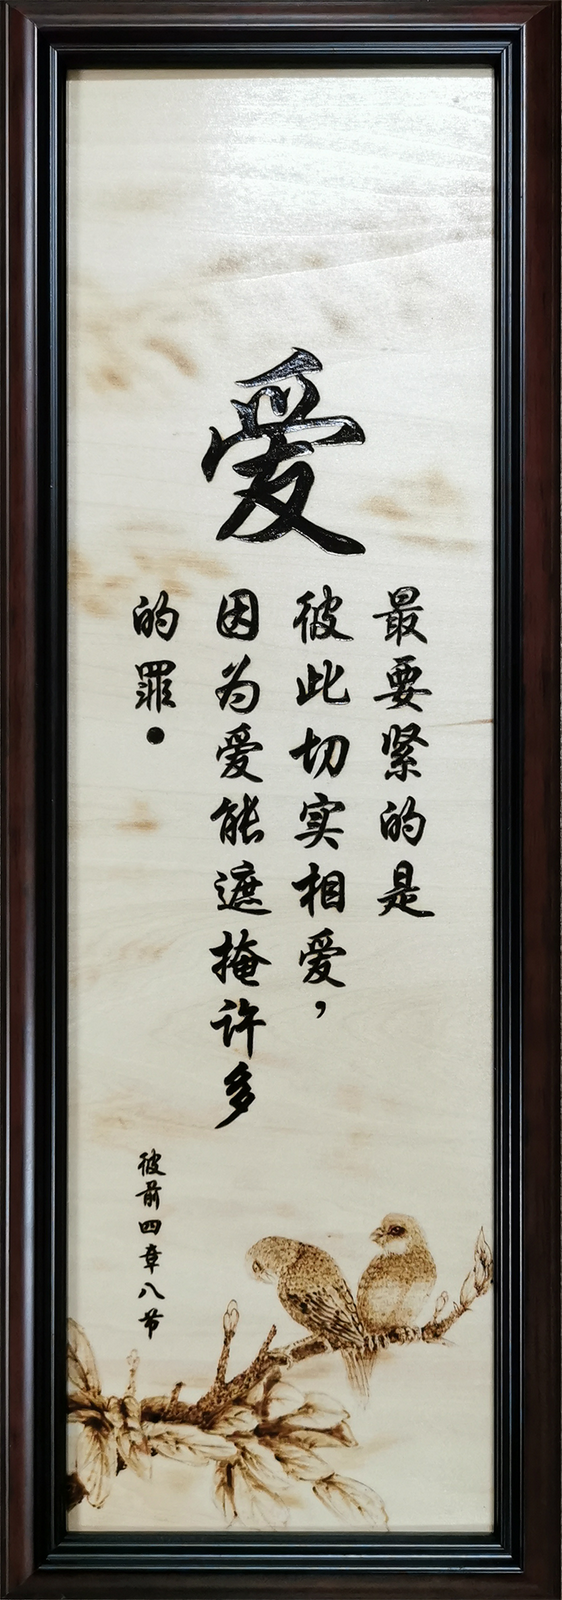 爱
最要紧的是
彼此切实相爱，
因为爱能遮掩许多
的罪.
彼前四章八节